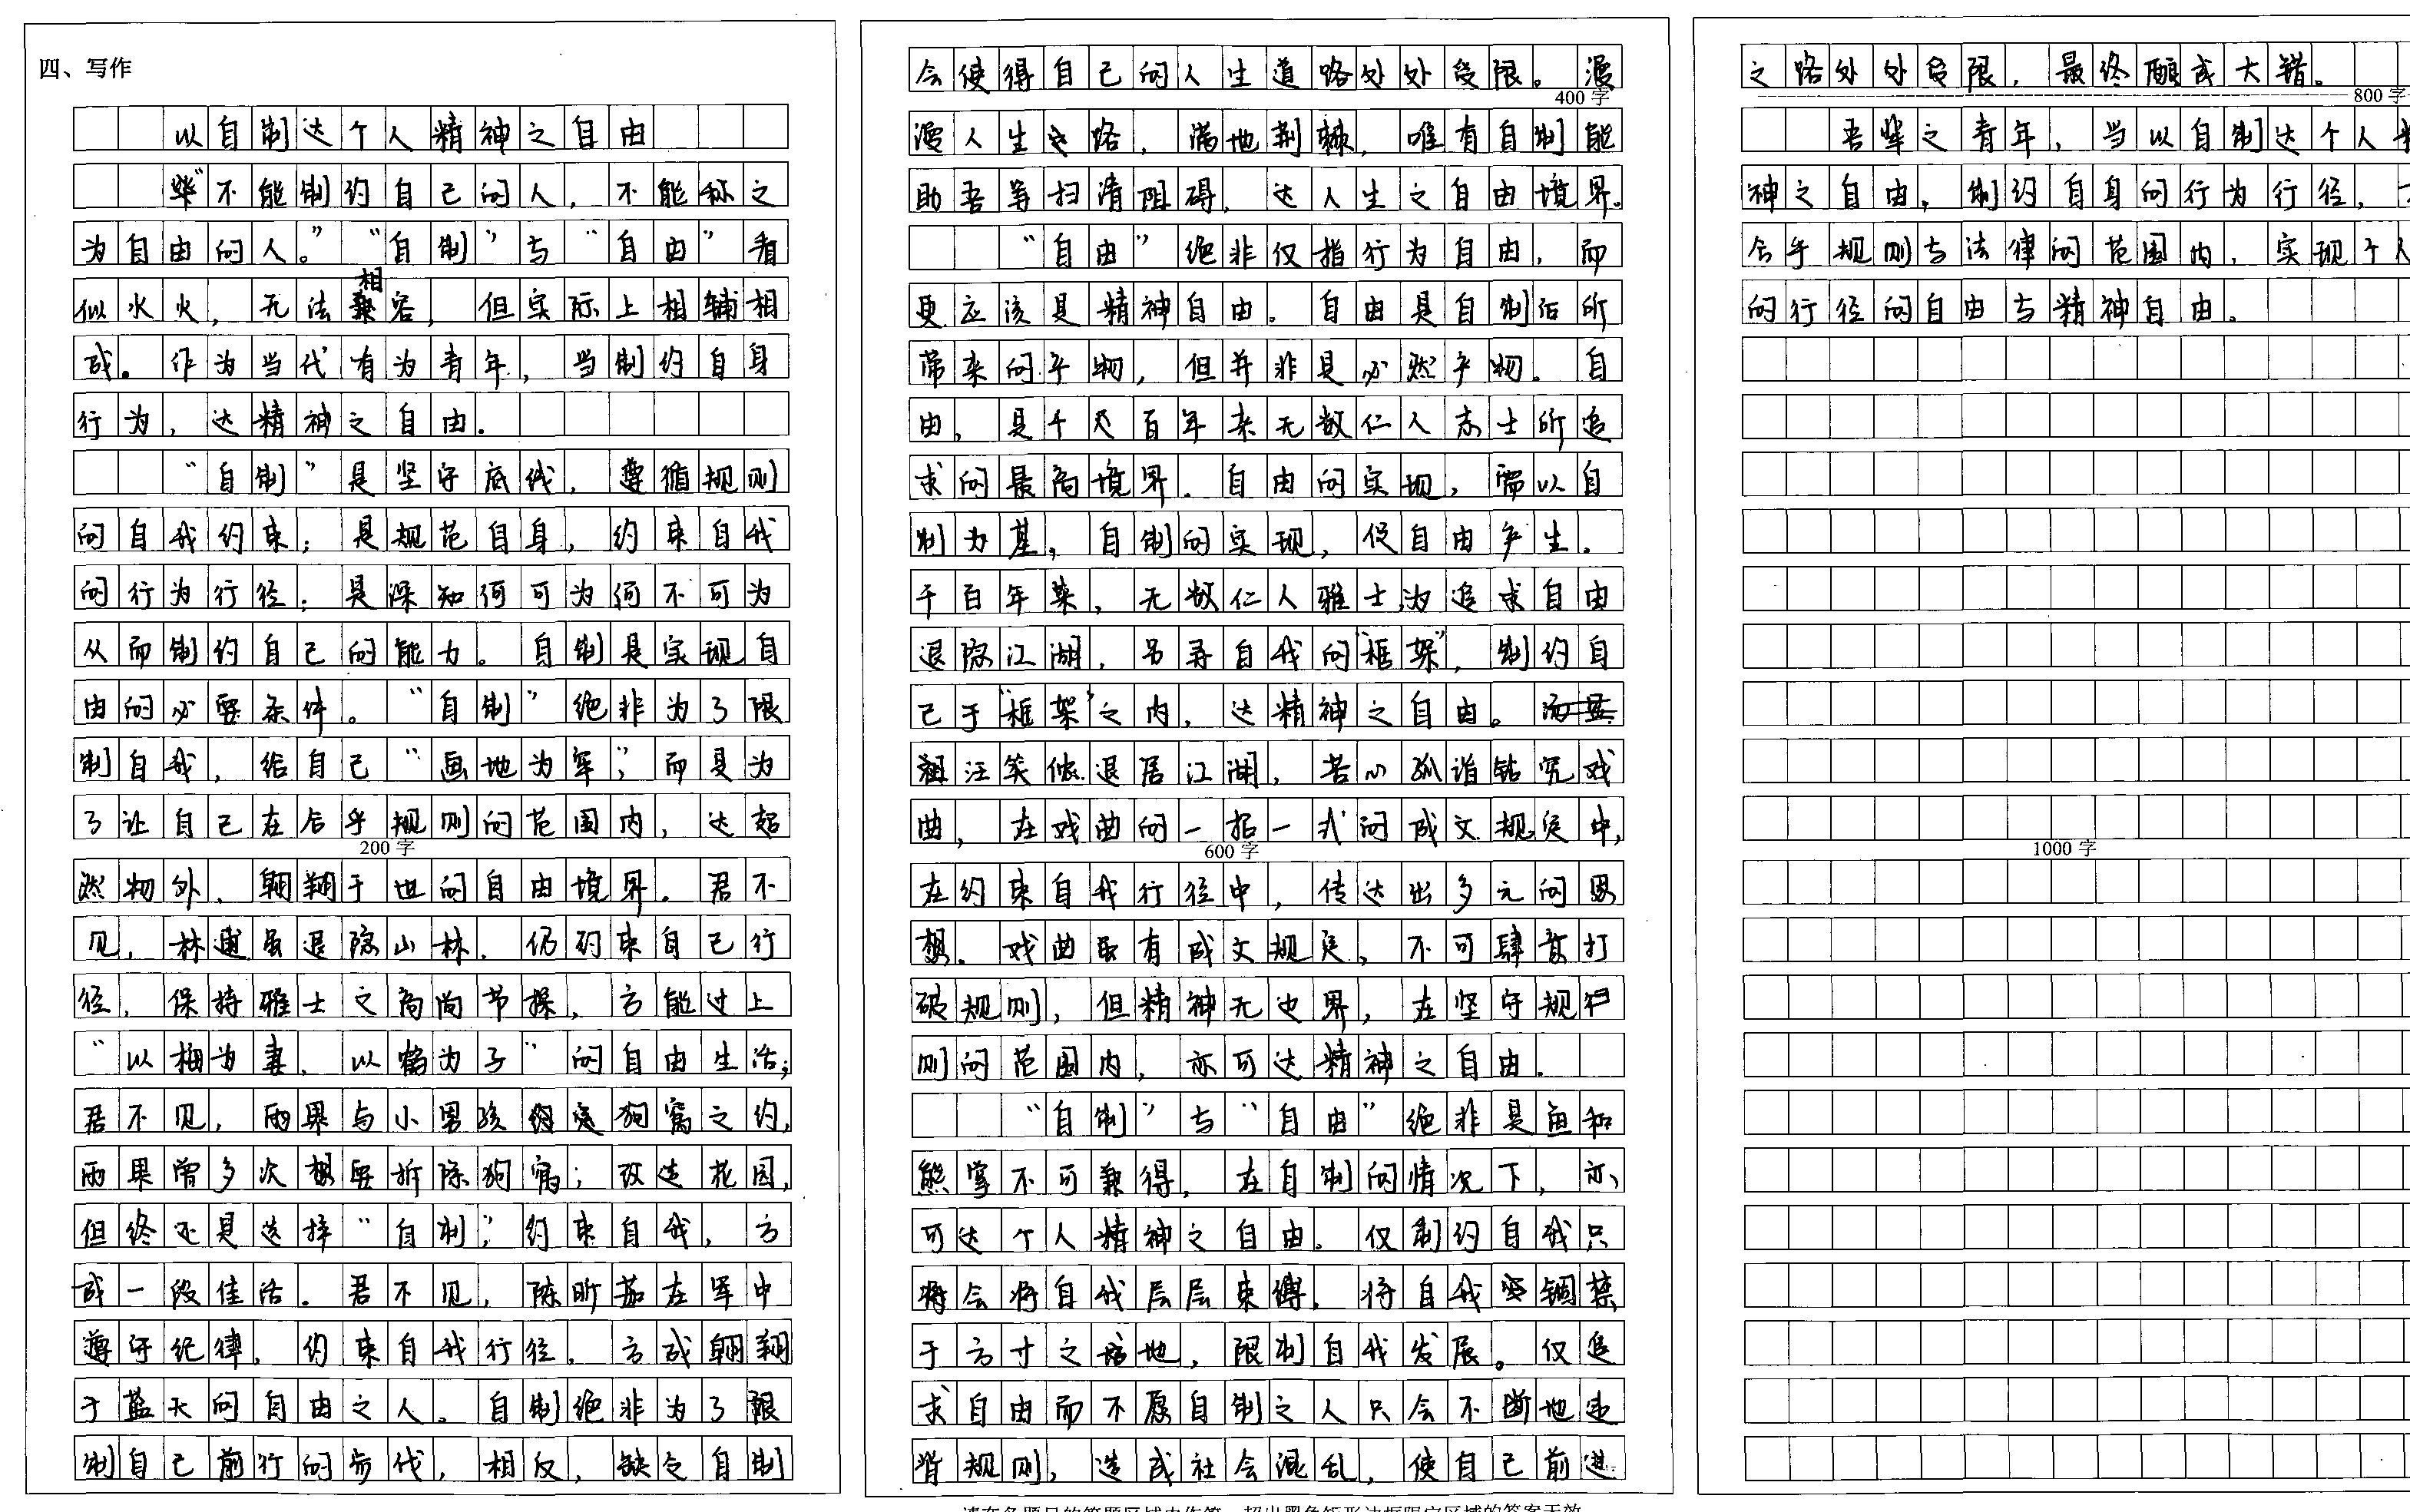 四、写作
以自制达个人精神之自由
"不能制约自己的人，不能称之
为自由的人。""自制"与"自由"看
似水火，无法相容，但实际上相辅相
成。作为当代有为青年，当制约自身
行为，达精神之自由。
"自制"是坚守底线，遵循规则
的自我约束；是规范自身，约束自我
的行为行径；是深知何可为何不可为
从而制约自己的能力。自制是实现自
由的必要条件。"自制"绝非为了限
制自我，给自己"画地为牢"，而是为
了让自己在合乎规则的范围内，达超
200字
然物外、翱翔于世的自由境界。君不
见，林逋虽退隐山林，仍约束自己行
径，保持雅士之高尚节操，方能过上
"以梅为妻，以鹤为子"的自由生活；
君不见，雨果与小男孩约定狗窝之约，
雨果曾多次想要拆除狗窝；改造花园，
但终还是选择"自制"，约束自我，方
成一段佳话。君不见，陈昕茹在军中
遵守纪律，约束自我行径，方成翱翔
于蓝天的自由之人。自制绝非为了限
制自己前行的步伐，相反，缺乏自制
会使得自己的人生道路处处受限。漫
400字
漫人生之路，满地荆棘，唯有自制能
助吾等扫清阻碍，达人生之自由境界。
"自由"绝非仅指行为自由，而
更应该是精神自由。自由是自制后所
带来的产物，但并非是必然产物。自
由，是千百年来无数仁人志士所追
求的最高境界。自由的实现，需以自
制为基，自制的实现，促自由产生。
千百年来，无数仁人雅士为追求自由
退隐江湖，另寻自我的"框架"，制约自
己于"框架"之内，达精神之自由。
汪笑侬退居江湖，苦心孤诣钻究戏
曲，在戏曲的一招一式的成文规定中，
600字
在约束自我行径中，传达出多元的思
想。戏曲虽有成文规定，不可肆意打
破规则，但精神无边界，在坚守规
则的范围内，亦可达精神之自由。
"自制"与"自由"绝非是鱼和
熊掌不可兼得，在自制的情况下，亦
可达个人精神之自由。仅制约自我只
会将自我层层束缚，将自我锢禁
于方寸之地，限制自我发展。仅追
求自由而不愿自制之人只会不断地违
背规则，造成社会混乱，使自己前进
之路处处受限，最终酿成大错。
800字
吾辈之青年，当以自制达个人
神之自由，制约自身的行为行径，
合乎规则与法律的范围内，实现个人
的行径的自由与精神自由。
1000字